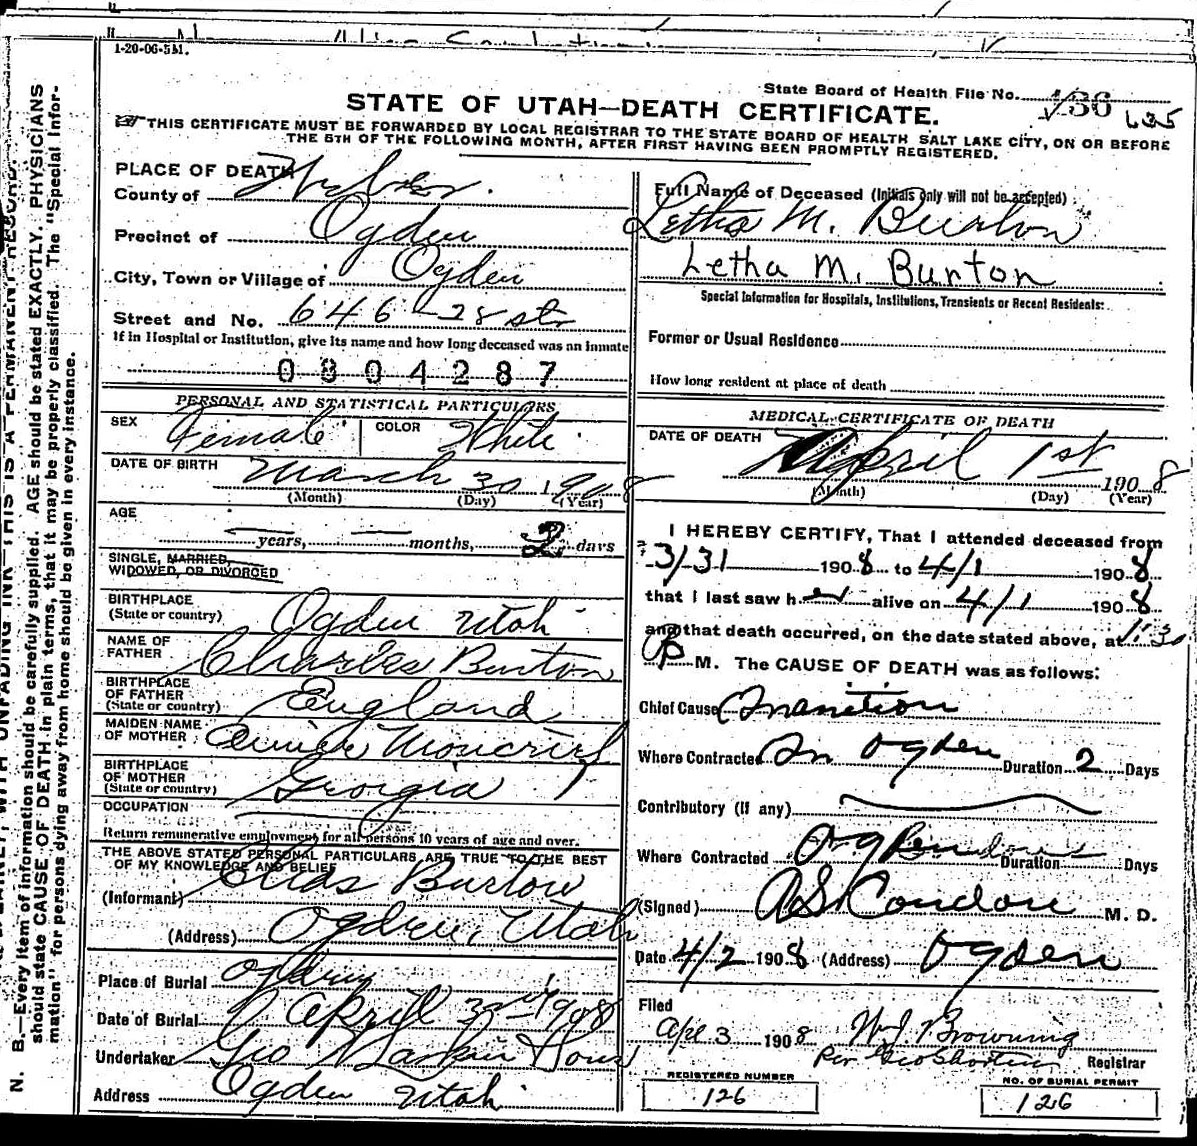 1-20-06-5M.
State Board of Health File No. 136 635
STATE OF UTAH—DEATH CERTIFICATE.
THIS CERTIFICATE MUST BE FORWARDED BY LOCAL REGISTRAR TO THE STATE BOARD OF HEALTH SALT LAKE CITY, ON OR BEFORE
THE 5TH OF THE FOLLOWING MONTH, AFTER FIRST HAVING BEEN PROMPTLY REGISTERED.
PLACE OF DEATH
County of Weber.
Precinct of Ogden
City, Town or Village of Ogden
Street and No. 646 - 28 str
If in Hospital or Institution, give its name and how long deceased was an inmate
0804287
PERSONAL AND STATISTICAL PARTICULARS
SEX Female COLOR White
DATE OF BIRTH March 30 1908
(Month) (Day) (Year)
AGE
— years, — months, 2 days
SINGLE, MARRIED,
WIDOWED, OR DIVORCED
BIRTHPLACE
(State or country) Ogden Utah
NAME OF
FATHER Charles Burton
BIRTHPLACE
OF FATHER
(State or country) England
MAIDEN NAME
OF MOTHER Annie Moncrief
BIRTHPLACE
OF MOTHER
(State or country) Georgia
OCCUPATION
Return remunerative employment for all persons 10 years of age and over.
THE ABOVE STATED PERSONAL PARTICULARS ARE TRUE TO THE BEST
OF MY KNOWLEDGE AND BELIEF
(Informant) Chas Burton
(Address) Ogden, Utah
Place of Burial Ogden
Date of Burial April 3rd 1908
Undertaker Geo
Address Ogden Utah
Full Name of Deceased (Initials only will not be accepted)
Letha M. Burton
Letha M. Burton
Special Information for Hospitals, Institutions, Transients or Recent Residents:
Former or Usual Residence
How long resident at place of death
MEDICAL CERTIFICATE OF DEATH
DATE OF DEATH April 1st 1908
(Month) (Day) (Year)
I HEREBY CERTIFY, That I attended deceased from
3/31 1908 to 4/1 1908
that I last saw her alive on 4/1 1908
and that death occurred, on the date stated above, at 11:30
P M. The CAUSE OF DEATH was as follows:
Chief Cause Inanition
Where Contracted In Ogden Duration 2 Days
Contributory (if any)
Where Contracted Duration Days
(Signed) A S Condon M. D.
Date 4/2 1908 (Address) Ogden
Filed
Apl 3 1908 Wm J Browning
Per Geo Shorten Registrar
REGISTERED NUMBER
126
NO. OF BURIAL PERMIT
126
N. B.—Every item of information should be carefully supplied. AGE should be stated EXACTLY. PHYSICIANS
should state CAUSE OF DEATH in plain terms, that it may be properly classified. The "Special Infor-
mation" for persons dying away from home should be given in every instance.